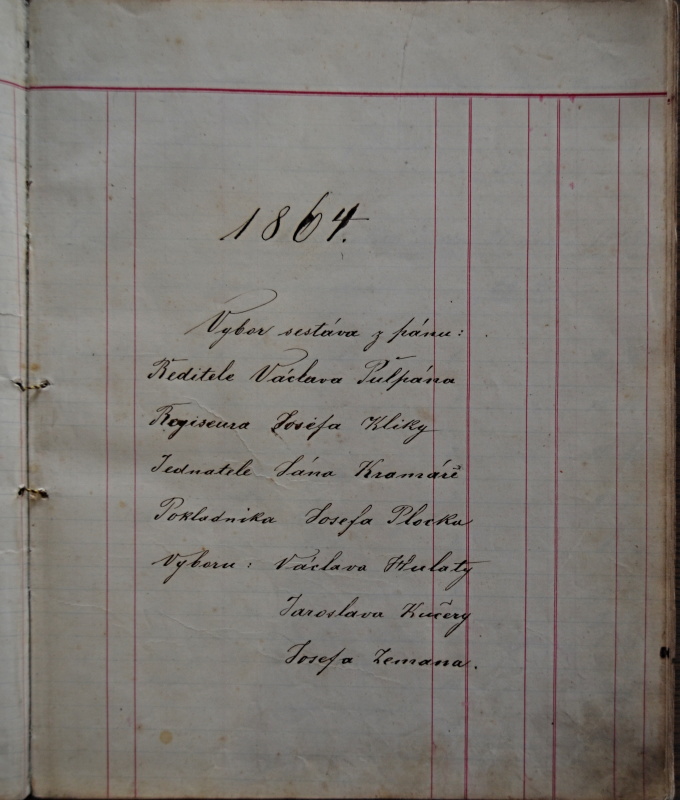 1864.
Vybor sestáva z pánu:
Reditele Václava Pulpána
Regiseura Josefa Kliky
Jednatele Jána Kramáře
Pokladnika Josefa Plocka
Vyboru: Václava Hulaty
Jaroslava Kučery
Josefa Zemana.